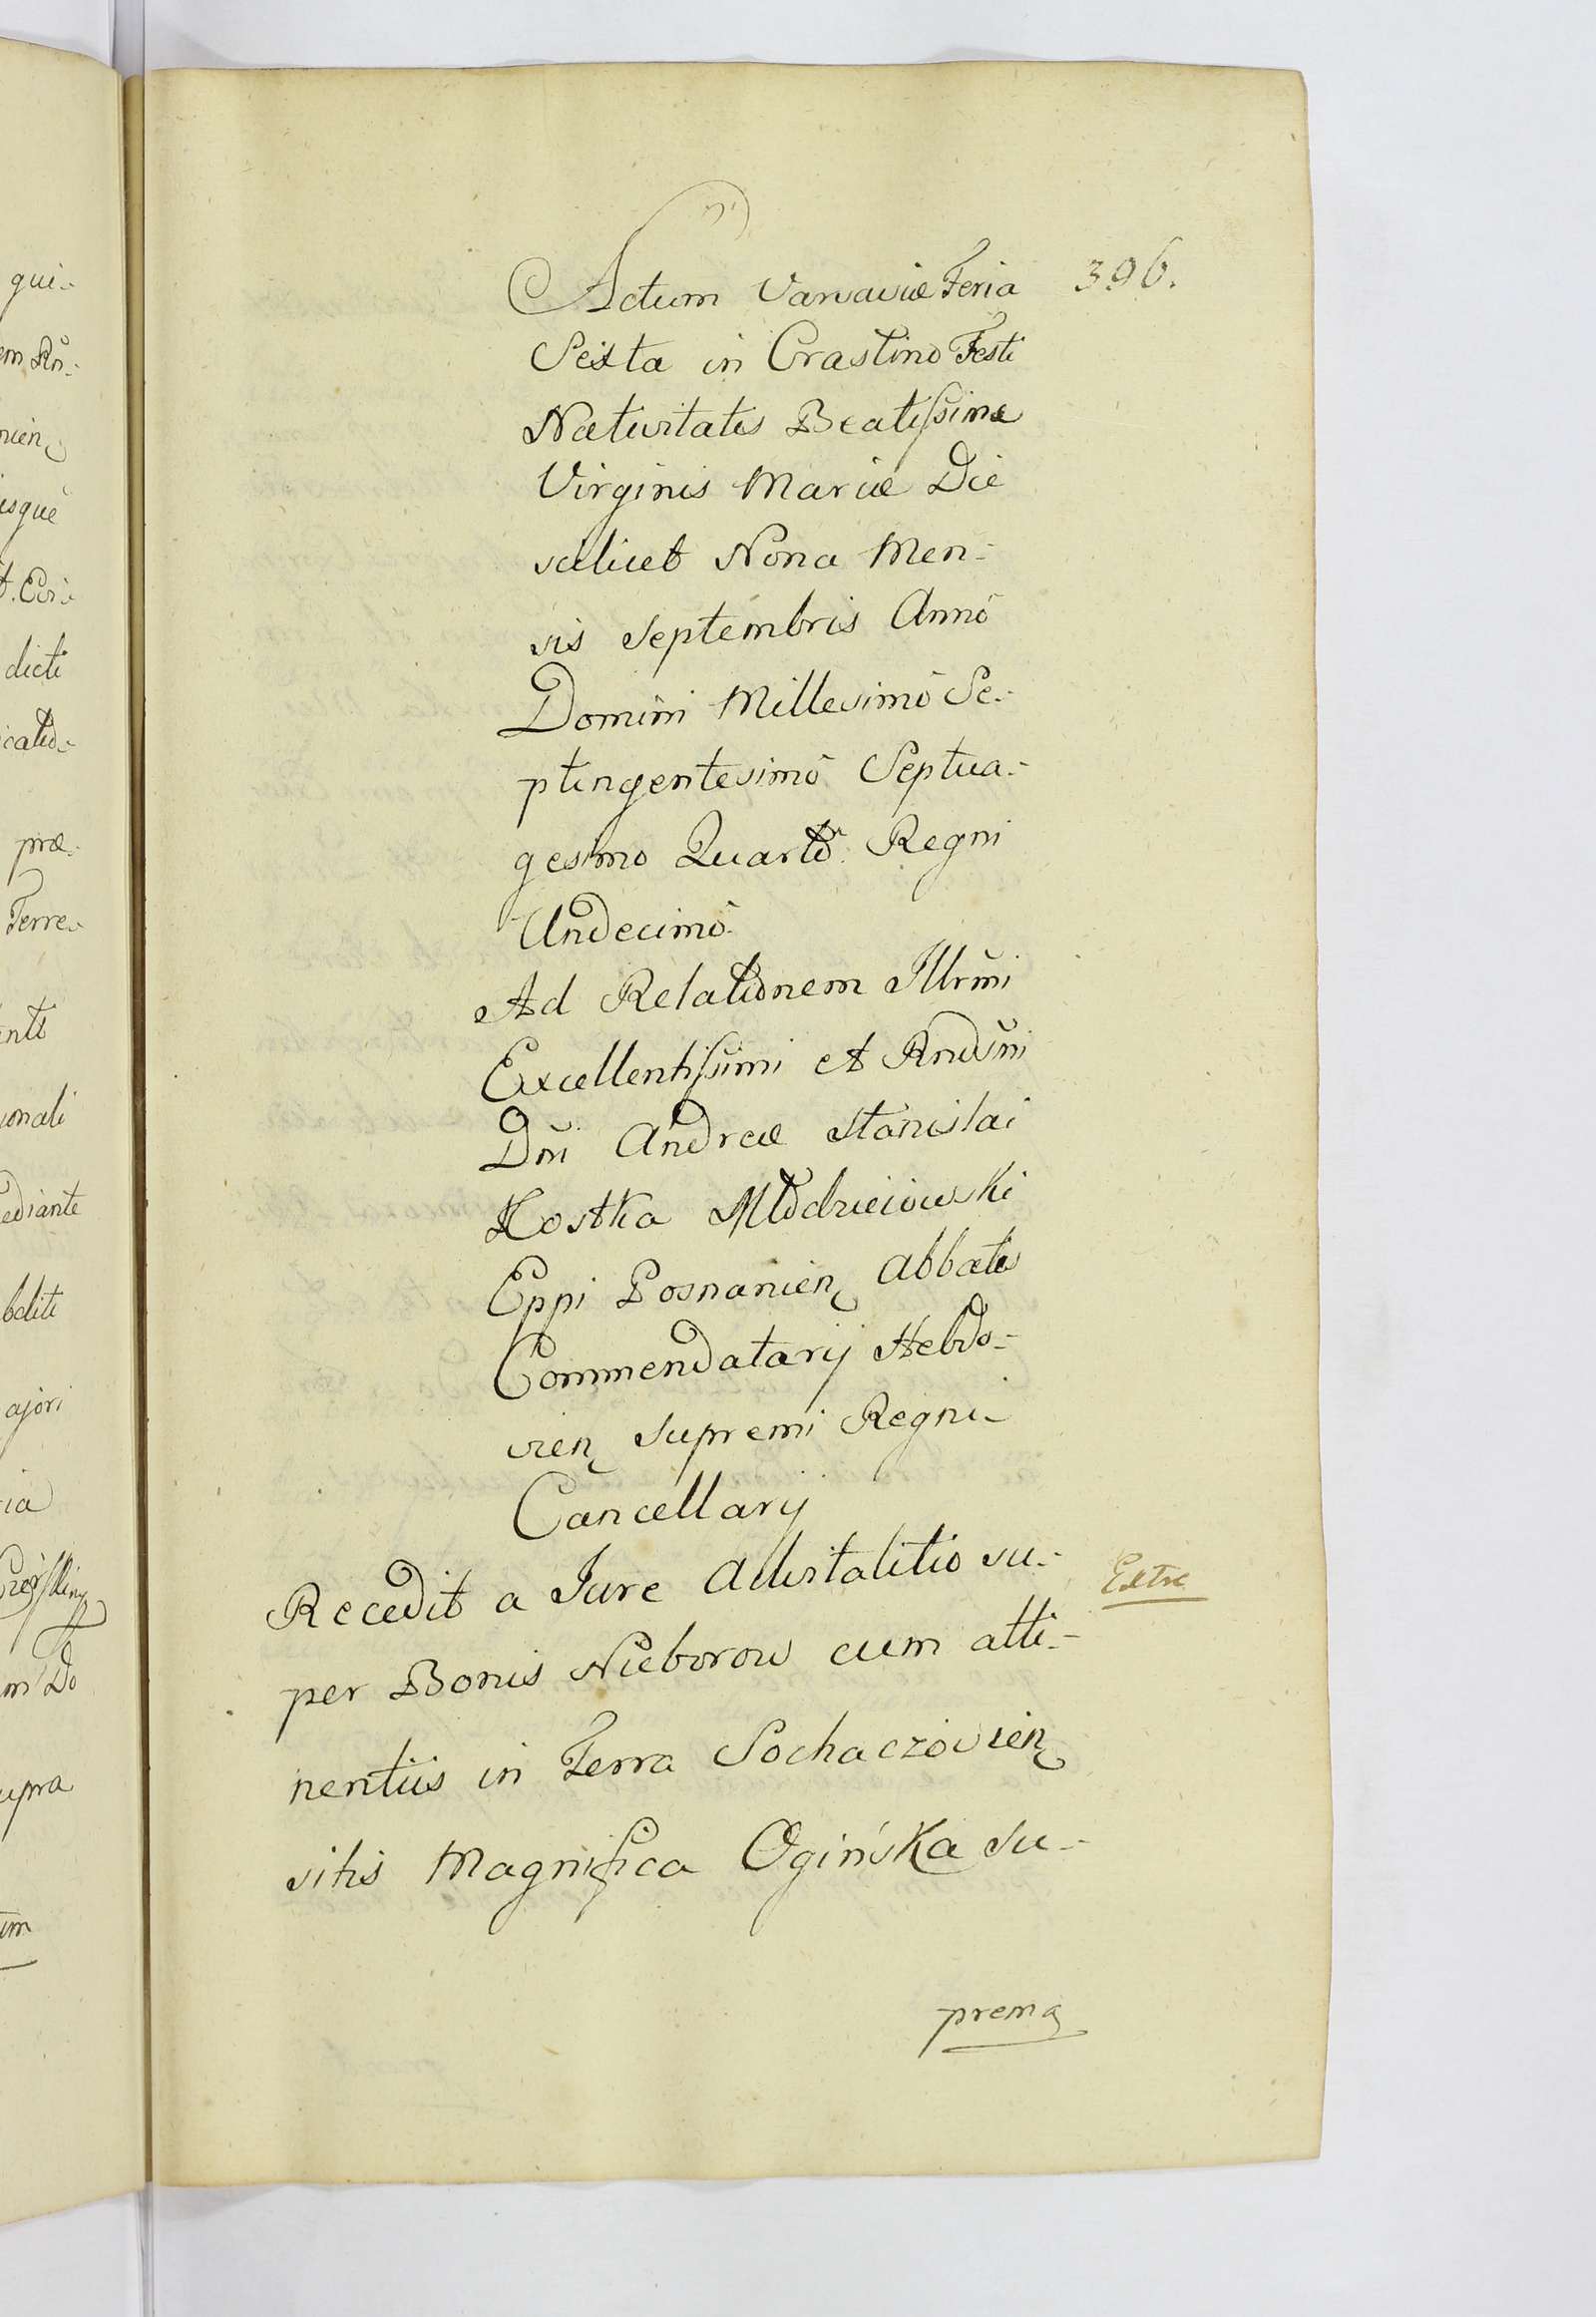 gui-
em Rñ:
nien
isque
t. Cir:
dicti
icatio-
præ-
Terre-
ionali
ediante
bditi
ajori
ria
m Do
upra
um
396.
Actum Varsaviæ Feria
Sexta in Crastino Festi
Nativitatis Beatissimæ
Virginis Mariæ Die
scilicet Nona Men-
sis Septembris Annô
Domini Millesimô Se-
ptingentesimô Septua-
gesimo Quartô Regni
Undecimô
Ad Relationem Illrm̃i
Excellentissimi et Rndsm̃i
Dñi Andreæ Stanislai
Kostka Młodzieiowski
Eppi Posnanien Abbatis
Commendatarij Hebdo-
vien Supremi Regni
Cancellarij
Recedit a Jure Advitalitio su-
Extr
per Bonis Nieborow cum atti-
nentiis in Terra Sochaczovien
sitis Magnifica Ogińska Su-
prema